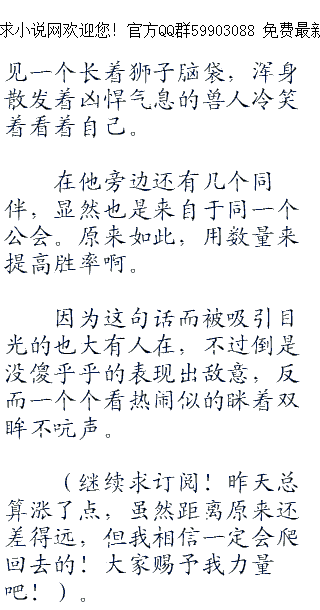 求小说网欢迎您！官方QQ群59903088 免费最新
见一个长着狮子脑袋，浑身
散发着凶悍气息的兽人冷笑
着看着自己。
在他旁边还有几个同
伴，显然也是来自于同一个
公会。原来如此，用数量来
提高胜率啊。
因为这句话而被吸引目
光的也大有人在，不过倒是
没傻乎乎的表现出敌意，反
而一个个看热闹似的眯着双
眸不吭声。
（继续求订阅！昨天总
算涨了点，虽然距离原来还
差得远，但我相信一定会爬
回去的！大家赐予我力量
吧！）。